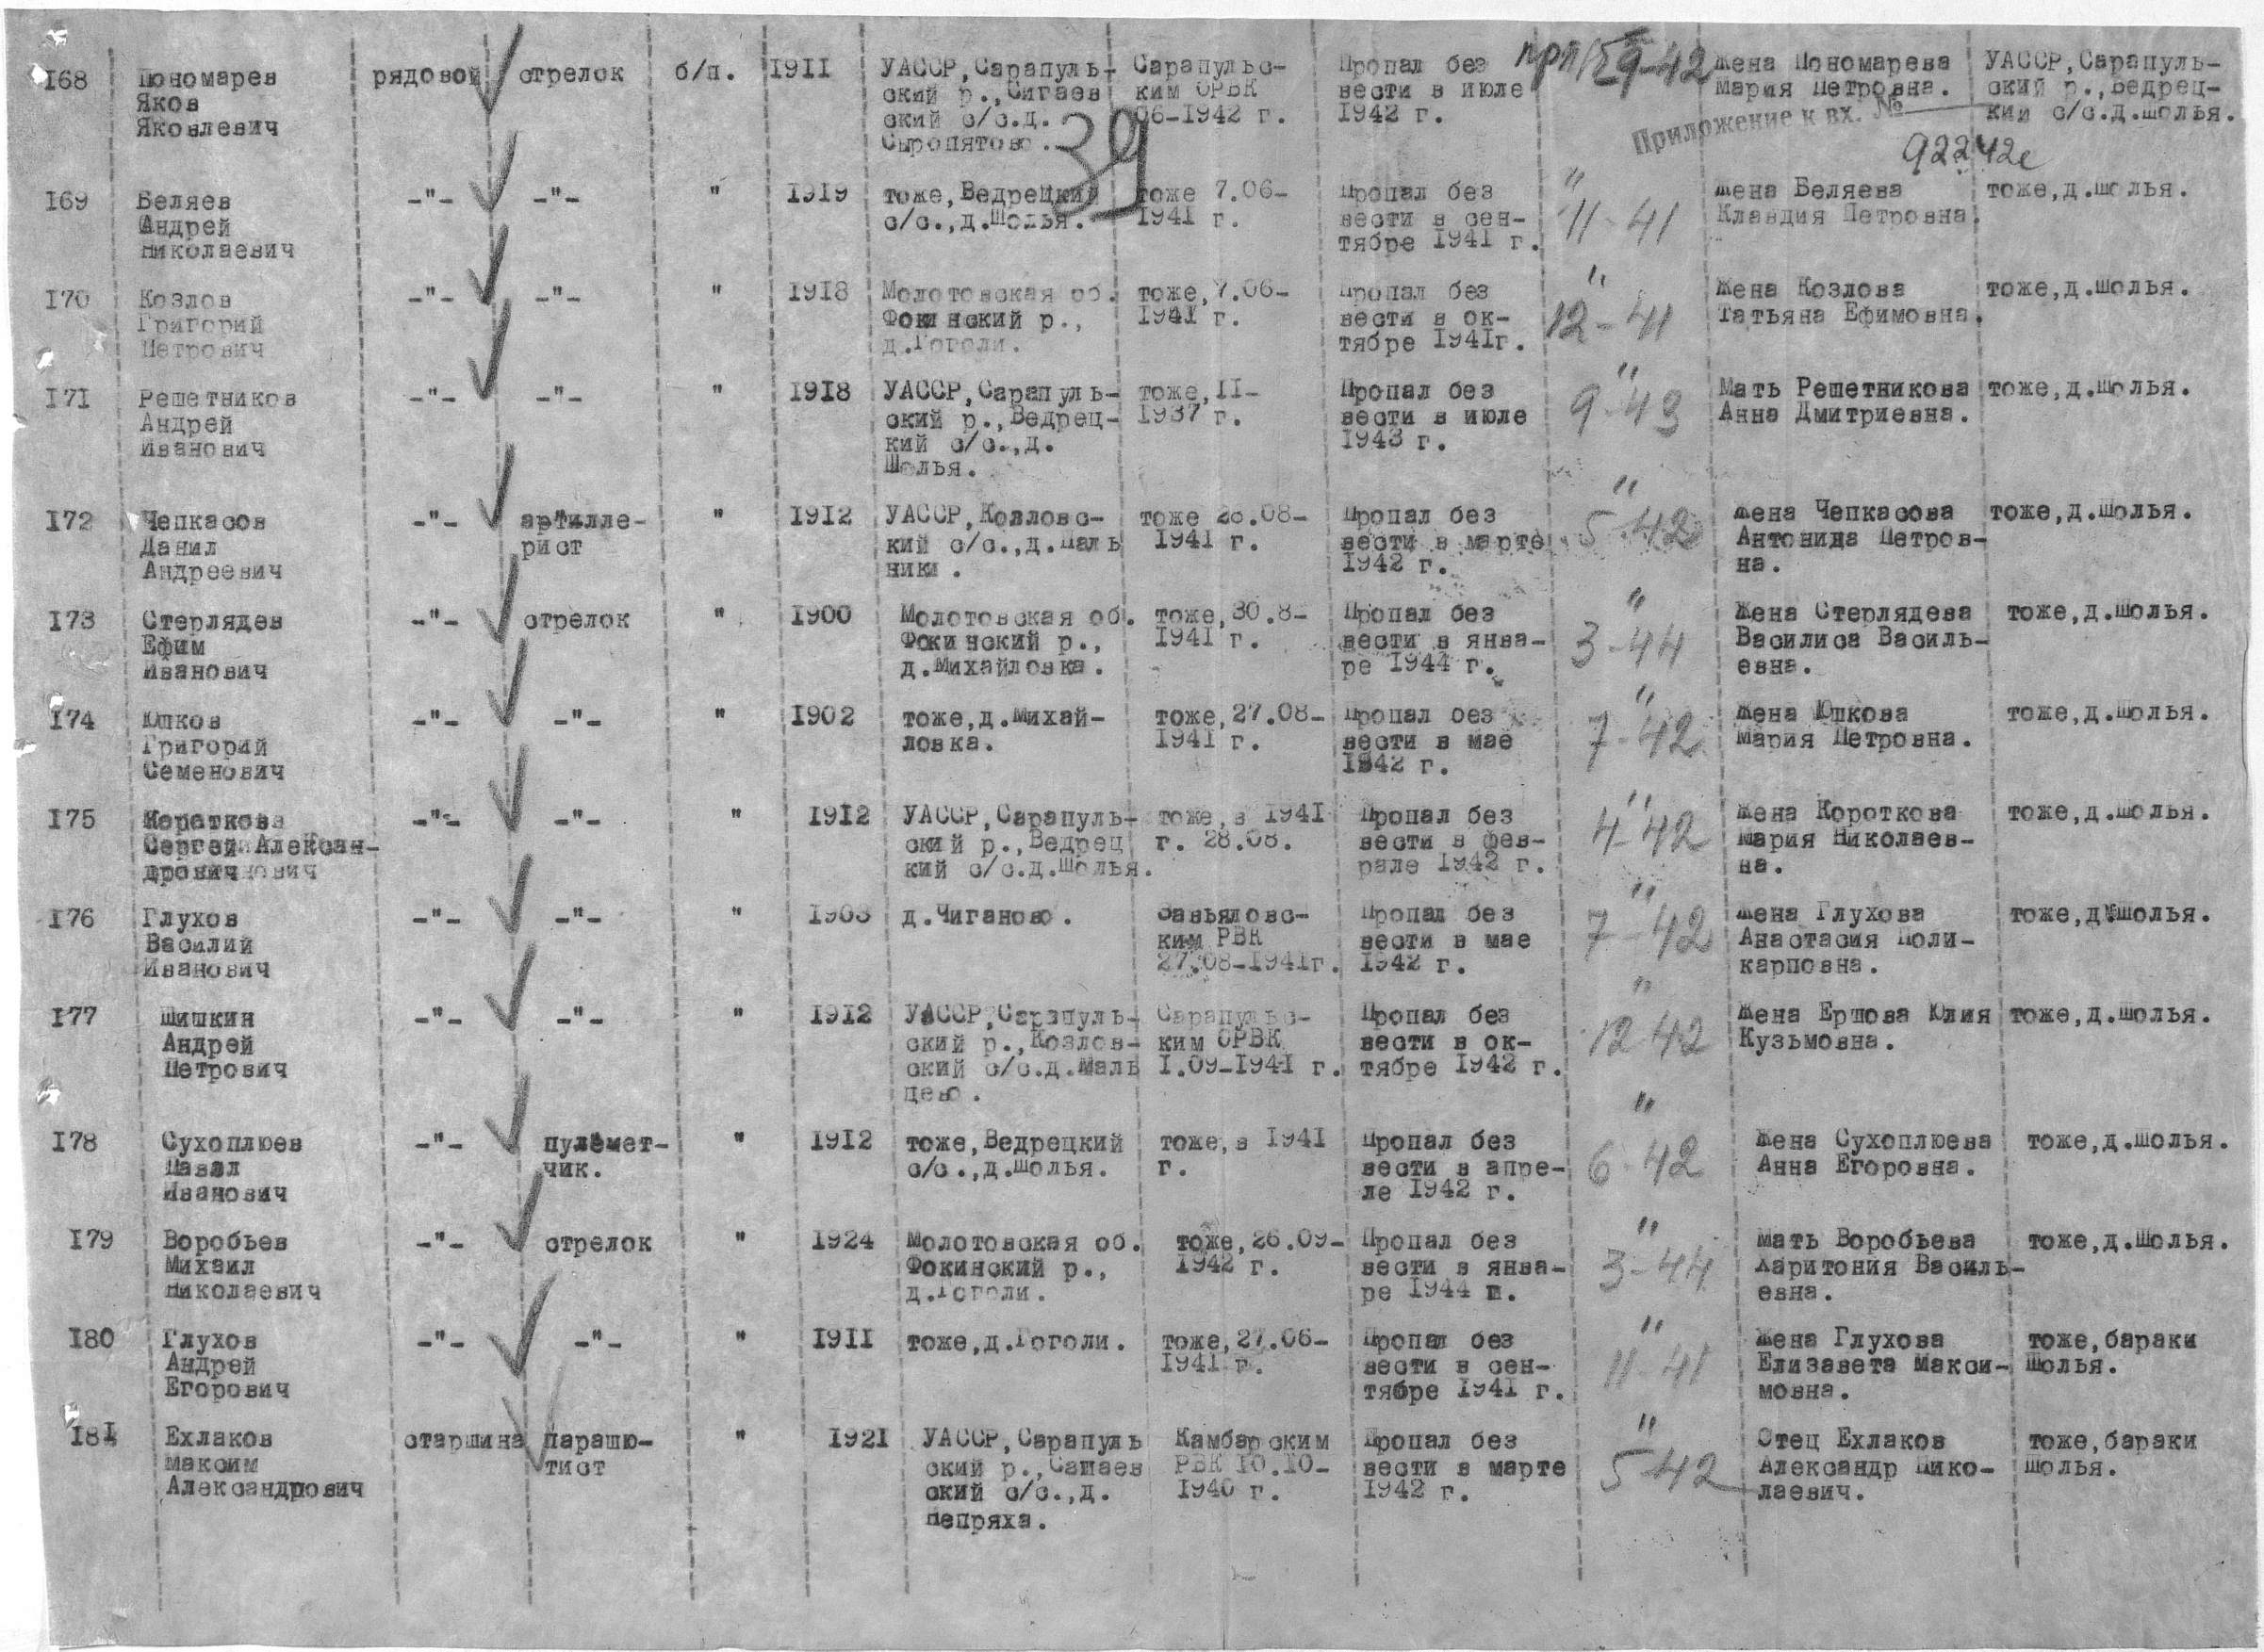 168 Пономарев рядовой стрелок б/п. 1911 УАССР,Сарапуль- Сарапульс- Пропал без прп 9-42 Жена Пономарева УАССР,Сарапуль-
Яков ский р.,Сигаев ким ОРВК вести в июле Мария Петровна. ский р.,Ведрец-
Яковлевич ский с/с.д. 06-1942 г. 1942 г. Приложение к вх. № кий с/с.д.Шолья.
Сыропятово. 39 92242с
169 Беляев -"- -"- " 1919 тоже,Ведрецкий тоже 7.06- Пропал без " Жена Беляева тоже,д.Шолья.
Андрей с/с.,д.Шолья. 1941 г. вести в сен- 11-41 Клавдия Петровна.
Николаевич тябре 1941 г.
170 Козлов -"- -"- " 1918 Молотовская об. тоже,7.06- Пропал без " Жена Козлова тоже,д.Шолья.
Григорий Фокинский р., 1941 г. вести в ок- 12-41 Татьяна Ефимовна.
Петрович д.Гоголи. тябре 1941г.
171 Решетников -"- -"- " 1918 УАССР,Сарапуль- тоже,11- Пропал без " Мать Решетникова тоже,д.Шолья.
Андрей ский р.,Ведрец- 1937 г. вести в июле 9-43 Анна Дмитриевна.
Иванович кий с/с.,д. 1943 г.
Шолья.
172 Чепкасов -"- артилле- " 1912 УАССР,Козловс- тоже 28.08- Пропал без " Жена Чепкасова тоже,д.Шолья.
Данил рист кий с/с.,д.Паль 1941 г. вести в марте 5-42 Антонида Петров-
Андреевич ники. 1942 г. на.
173 Стерлядев -"- стрелок " 1900 Молотовская об. тоже,30.8- Пропал без " Жена Стерлядева тоже,д.Шолья.
Ефим Фокинский р., 1941 г. вести в янва- 3-44 Василиса Василь-
Иванович д.Михайловка. ре 1944 г. евна.
174 Юшков -"- -"- " 1902 тоже,д.Михай- тоже,27.08- Пропал без " Жена Юшкова тоже,д.Шолья.
Григорий ловка. 1941 г. вести в мае 7-42 Мария Петровна.
Семенович 1942 г.
175 -"- -"- " 1912 УАССР,Сарапуль- тоже,в 1941 Пропал без " Жена Короткова тоже,д.Шолья.
Сергей Алексан- ский р.,Ведрец г. 28.08. вести в фев- 4-42 Мария Николаев-
дрович кий с/с.д.Шолья. рале 1942 г. на.
176 Глухов -"- -"- " д.Чиганово. Завьяловс- Пропал без " Жена Глухова тоже,д.Шолья.
Василий ким РВК вести в мае 7-42 Анастасия Поли-
Иванович 27.08-1941г. 1942 г. карповна.
177 Шишкин -"- -"- " 1912 УАССР,Сарапуль- Сарапульс- Пропал без " Жена Ершова Юлия тоже,д.Шолья.
Андрей ский р.,Козлов- ким ОРВК вести в ок- 12-42 Кузьмовна.
Петрович ский с/с.д.Маль 1.09-1941 г. тябре 1942 г.
цево.
178 Сухоплюев -"- пулемет- " 1912 тоже,Ведрецкий тоже,в 1941 Пропал без " Жена Сухоплюева тоже,д.Шолья.
Павел чик. с/с.,д.Шолья. г. вести в апре- 6-42 Анна Егоровна.
Иванович ле 1942 г.
179 Воробьев -"- стрелок " 1924 Молотовская об. тоже,26.09- Пропал без " Мать Воробьева тоже,д.Шолья.
Михаил Фокинский р., 1942 г. вести в янва- 3-44 Харитония Василь-
Николаевич д.Гоголи. ре 1944 г. евна.
180 Глухов -"- -"- " 1911 тоже,д.Гоголи. тоже,27.06- Пропал без " Жена Глухова тоже,бараки
Андрей 1941 г. вести в сен- 11-41 Елизавета Макси- Шолья.
Егорович тябре 1941 г. мовна.
181 Ехлаков старшина парашю- " 1921 УАССР,Сарапуль Камбарским Пропал без " Отец Ехлаков тоже,бараки
Максим тист ский р.,Санаев РВК 10.10- вести в марте 5-42 Александр Нико- Шолья.
Александрович ский с/с.,д. 1940 г. 1942 г. лаевич.
Непряха.